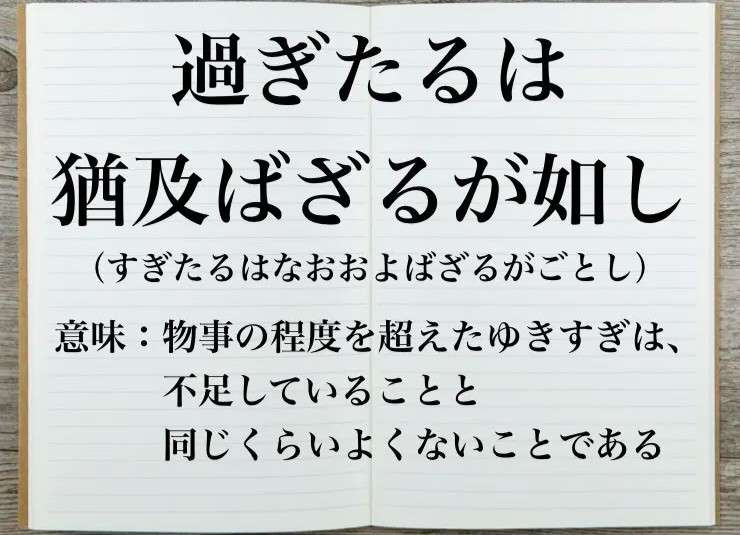 過ぎたるは
猶及ばざるが如し
（すぎたるはなおおよばざるがごとし）
意味：物事の程度を超えたゆきすぎは、
不足していることと
同じくらいよくないことである